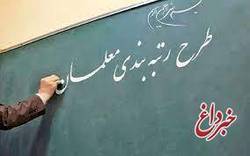 بسم الله الرحمن الرحیم
طرح رتبه بندی معلمان
خبرداغ